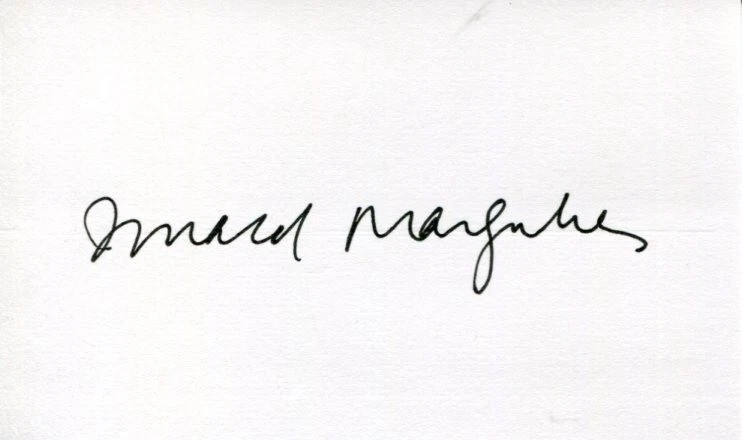 Donald Margulies